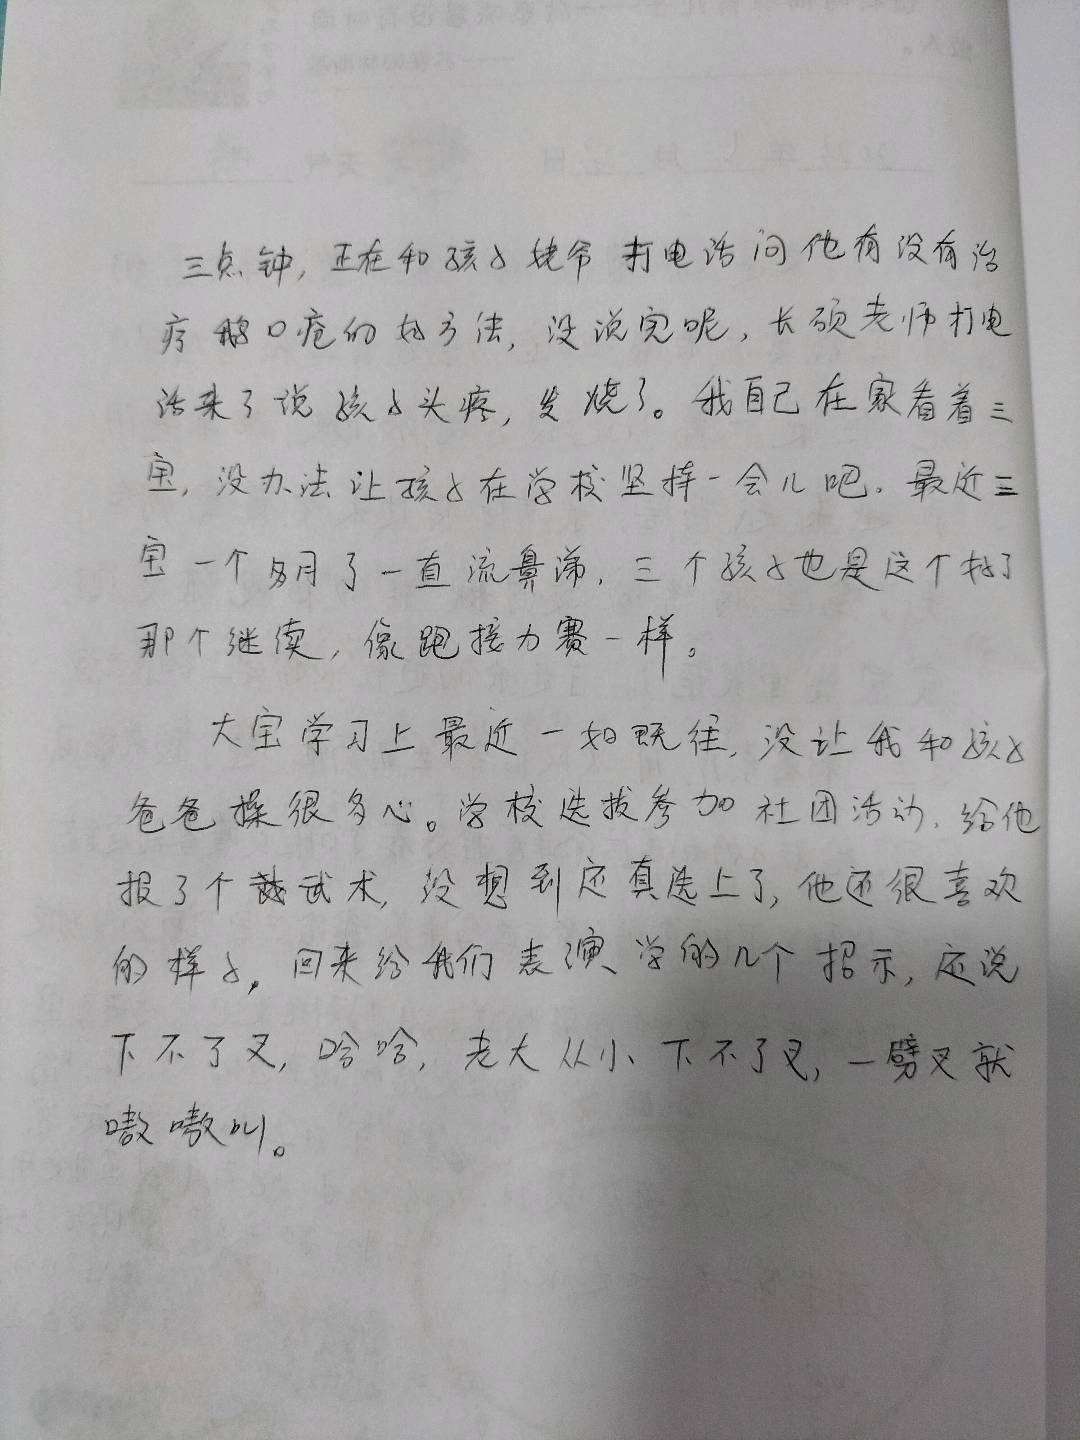 三点钟，正在和孩子姥爷打电话问他有没有治
疗鹅口疮的好方法，没说完呢，长硕老师打电
话来了说孩子头疼，发烧了。我自己在家看着三
宝，没办法让孩子在学校坚持一会儿吧。最近三
宝一个多月了一直流鼻涕，三个孩子也是这个好了
那个继续，像跑接力赛一样。
大宝学习上最近一如既往，没让我和孩子
爸爸操很多心。学校选拔参加社团活动，给他
报了个武术，没想到还真选上了，他还很喜欢
的样子，回来给我们表演学的几个招示，还说
下不了叉，哈哈，老大从小下不了叉，一劈叉就
嗷嗷叫。